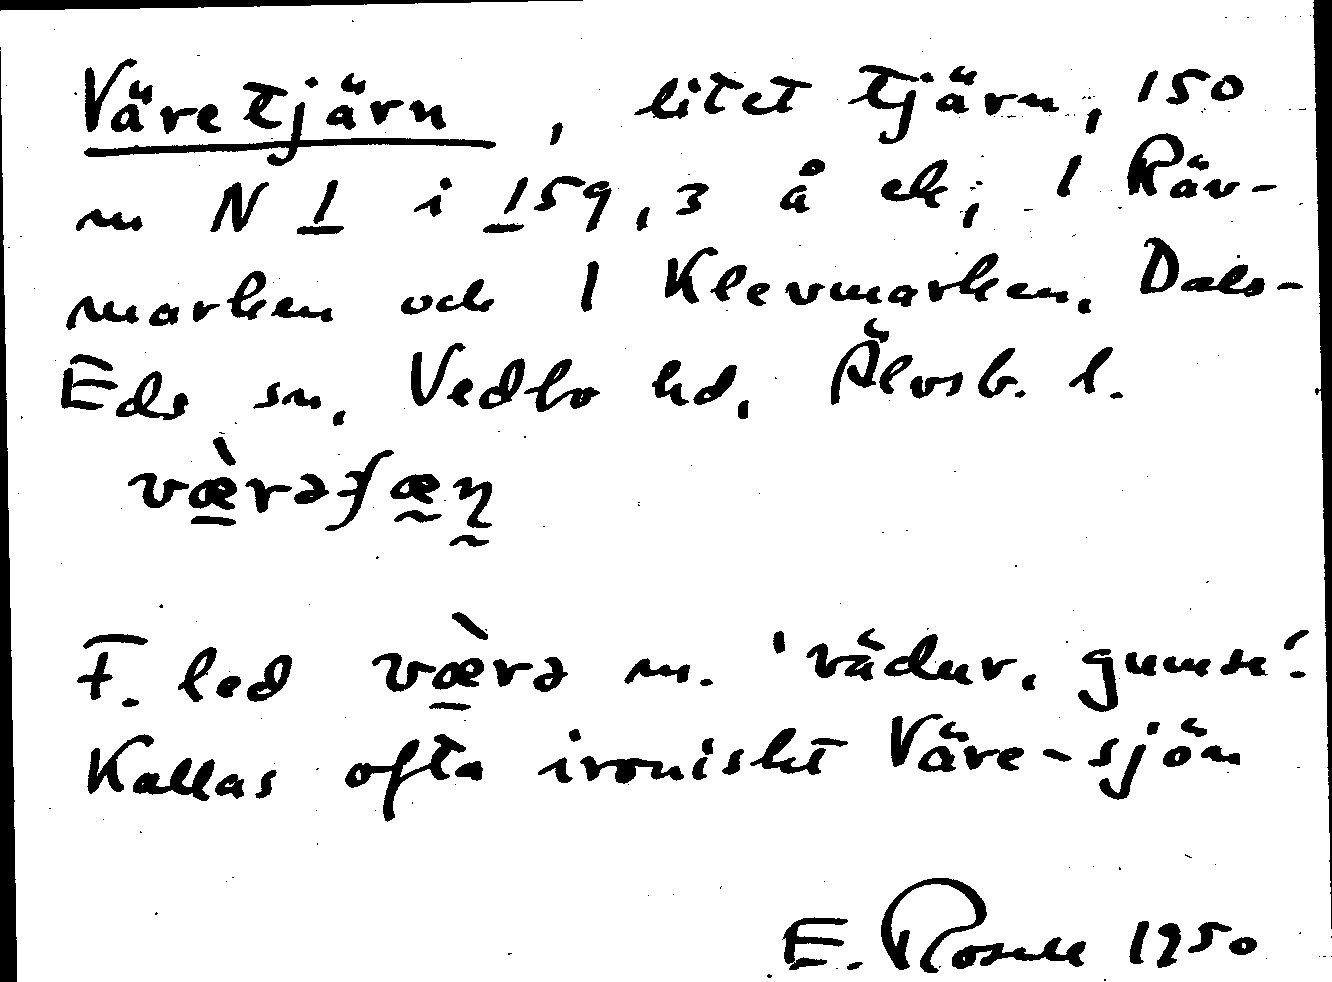 Väretjärn, litet tjärn, 150
m N 1 i 159,3 å ek; 1 Räv-
marken och 1 Klevmarken, Dals-
Eds sn, Vedbo hd, Älvsb. l.
væ̀rəʄæṇ
F. led væ̀rə m. 'vädur, gumse'.
Kallas ofta ironiskt Väre-sjön
E. Rosell 1950